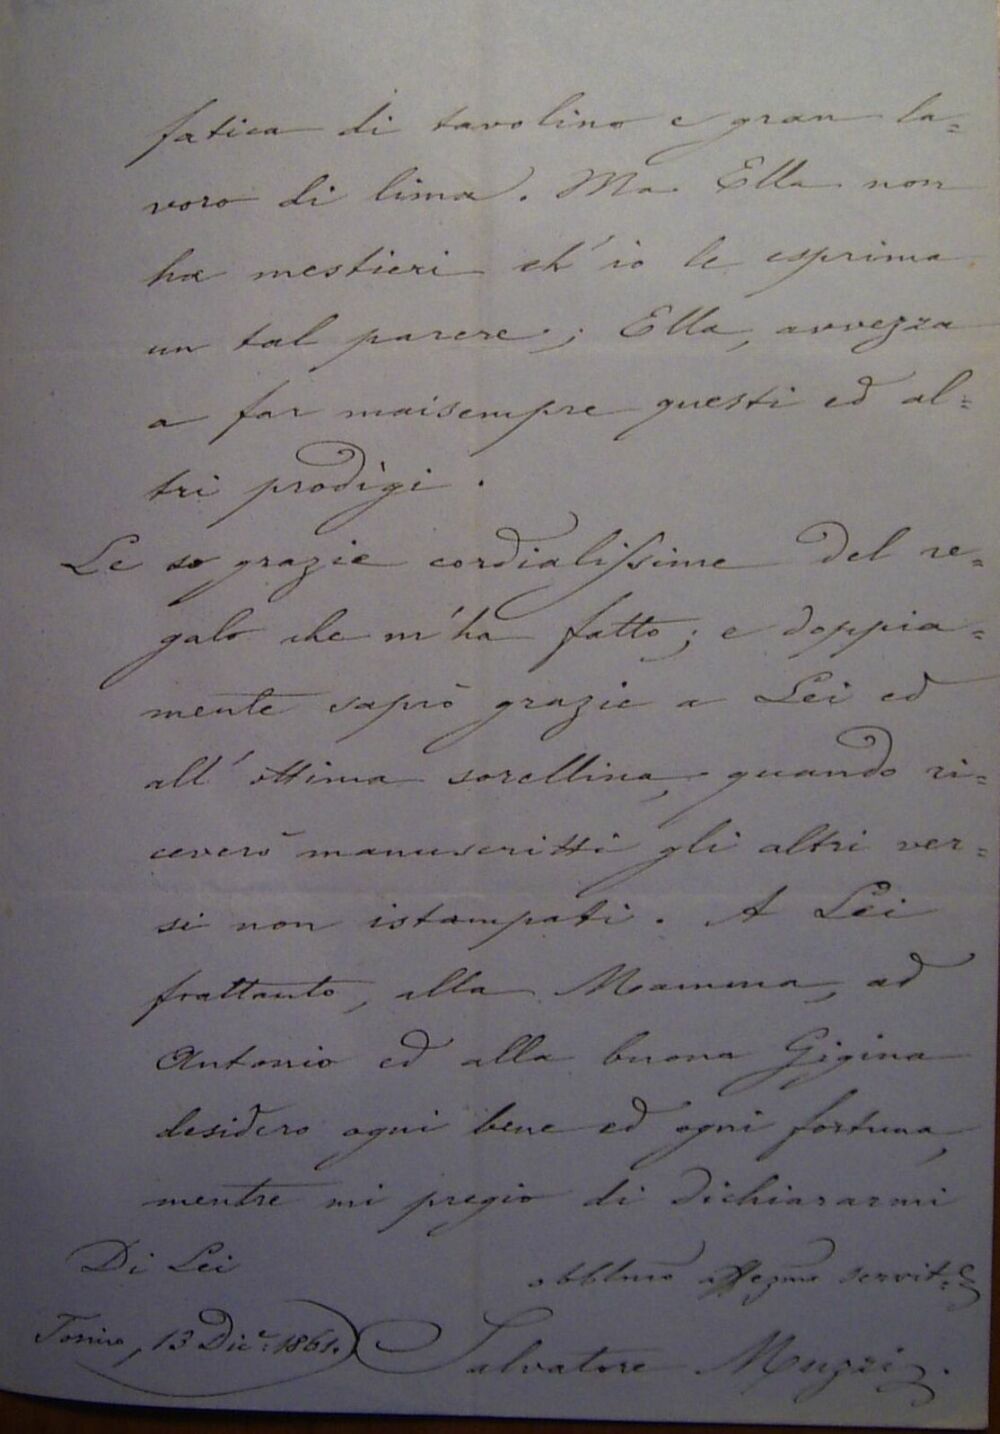 fatica di tavolino e gran la=
voro di lima. Ma Ella non
ha mestieri ch'io le esprima
un tal parere; Ella, avvezza
a far maisempre questi ed al=
tri prodìgi.
Le so grazie cordialissime del re=
galo che m'ha fatto; e doppia=
mente saprò grazie a Lei ed
all'ottima sorellina, quando ri=
ceverò manuscritti gli altri ver=
si non istampati. A Lei
frattanto, alla Mamma, ad
Antonio ed alla buona Gigina
desidero ogni bene ed ogni fortuna,
mentre mi pregio di dichiararmi
Di Lei
obblmo affezmo servit.e
Torino, 13 Dic.e 1861.
Salvatore Muzzi.